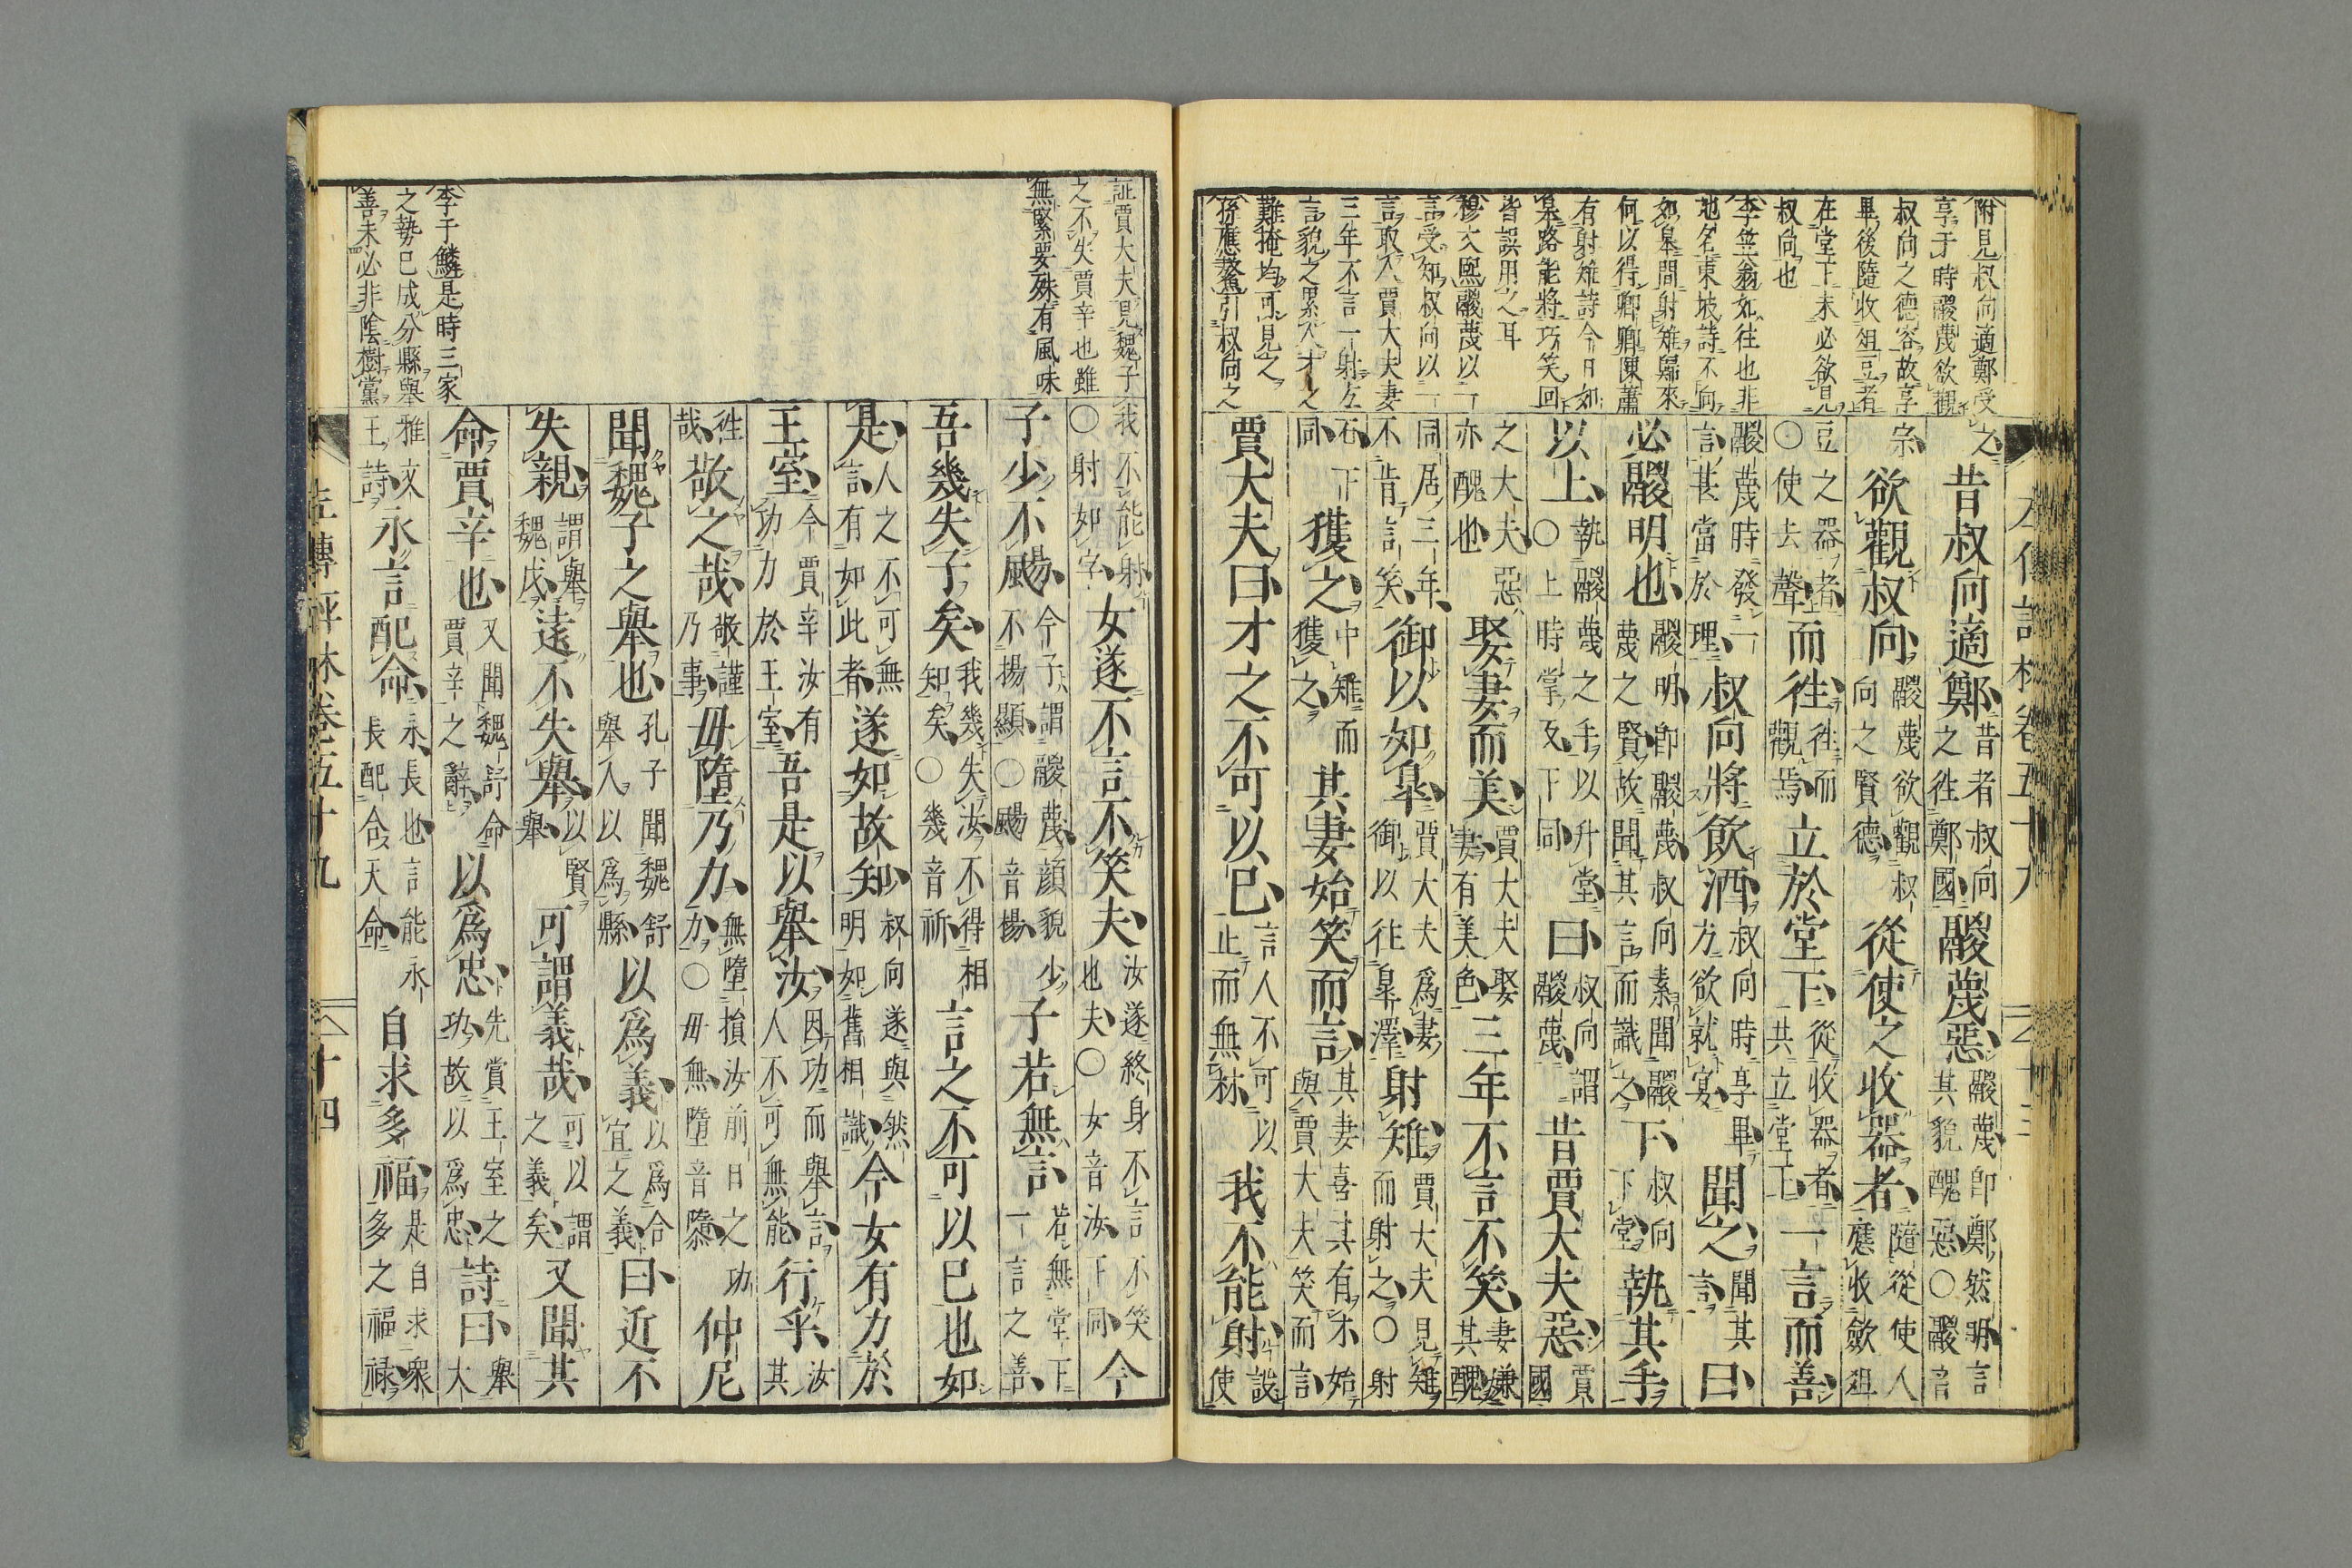 附見叔向適鄭受
享于時鬷蔑欲觀
叔向之德容故享
畢後隨收俎豆者
在堂下未必欲見
叔向也
李笠翁如往也非
地名東坡詩不向
如皋間射雉歸來
何以得卿卿陳蕭
有射雉詩今日如
皋路能將巧笑回
皆誤用之耳
穆文熙鬷蔑以一
言受知叔向以一
言取人賈大夫妻
三年不言一射左
言貌之累人才之
難掩均可見之
孫應鰲引叔向之
之昔叔向適鄭昔者叔向之往鄭國鬷蔑惡鬷蔑即鄭然明言其貌醜惡○鬷音
宗欲觀叔向鬷蔑欲觀叔向之賢德從使之收器者隨從使人應收斂俎
豆之器者○使去聲而往往而觀焉立於堂下從收器者共立堂下一言而善
鬷蔑時發一言甚當於理叔向將飲酒叔向時享畢方欲就宴聞之聞其言曰
必鬷明也鬷明即鬷蔑叔向素聞鬷蔑之賢故聞其言而識之下叔向下堂執其手
以上執鬷蔑之手以升堂○上時掌反下同曰叔向謂鬷蔑昔賈大夫惡賈國
之大夫惡亦醜也娶妻而美賈大夫娶妻有美色三年不言不笑妻嫌其醜
同居三年不肯言笑御以如皋賈大夫爲妻御以往皋澤射雉賈大夫見雉而射之○射
石下同獲之中雉而獲之其妻始笑而言其妻喜其有才始與賈大夫笑而言
賈大夫曰才之不可以已言人不可以止而無材我不能射設使
証賈大夫見魏子
之不失賈辛也雖
無緊要殊有風味
李于鱗是時三家
之勢已成分縣舉
善未必非陰樹黨
我不能射○射如字女遂不言不笑夫汝遂終身不言不笑也夫○女音汝下同今
子少不颺今子謂鬷蔑顔貌少不揚顯○颺音楊子若無言若無堂下一言之善
吾幾失子矣我幾失汝不得相知矣○幾音祈言之不可以已也如
是人之不可無言有如此者遂如故知叔向遂與然明如舊相識今女有力於
王室今賈辛汝有功力於王室吾是以舉汝因功而舉言人不可無能行乎汝其
往哉敬之哉敬謹乃事毋墮乃力無墮損汝前日之功力○毋無墮音隳仲尼
聞魏子之舉也孔子聞魏舒舉人以爲縣以爲義以爲合宜之義曰近不
失親謂舉魏戊遠不失舉以賢舉可謂義哉可以謂之義矣又聞其
命賈辛也又聞魏舒命賈辛之辭以爲忠先賞王室之功故以爲忠詩曰舉大
雅文王詩永言配命永長也言能永長配合天命自求多福是自求衆多之福禄
左傳評林卷五十九 十四